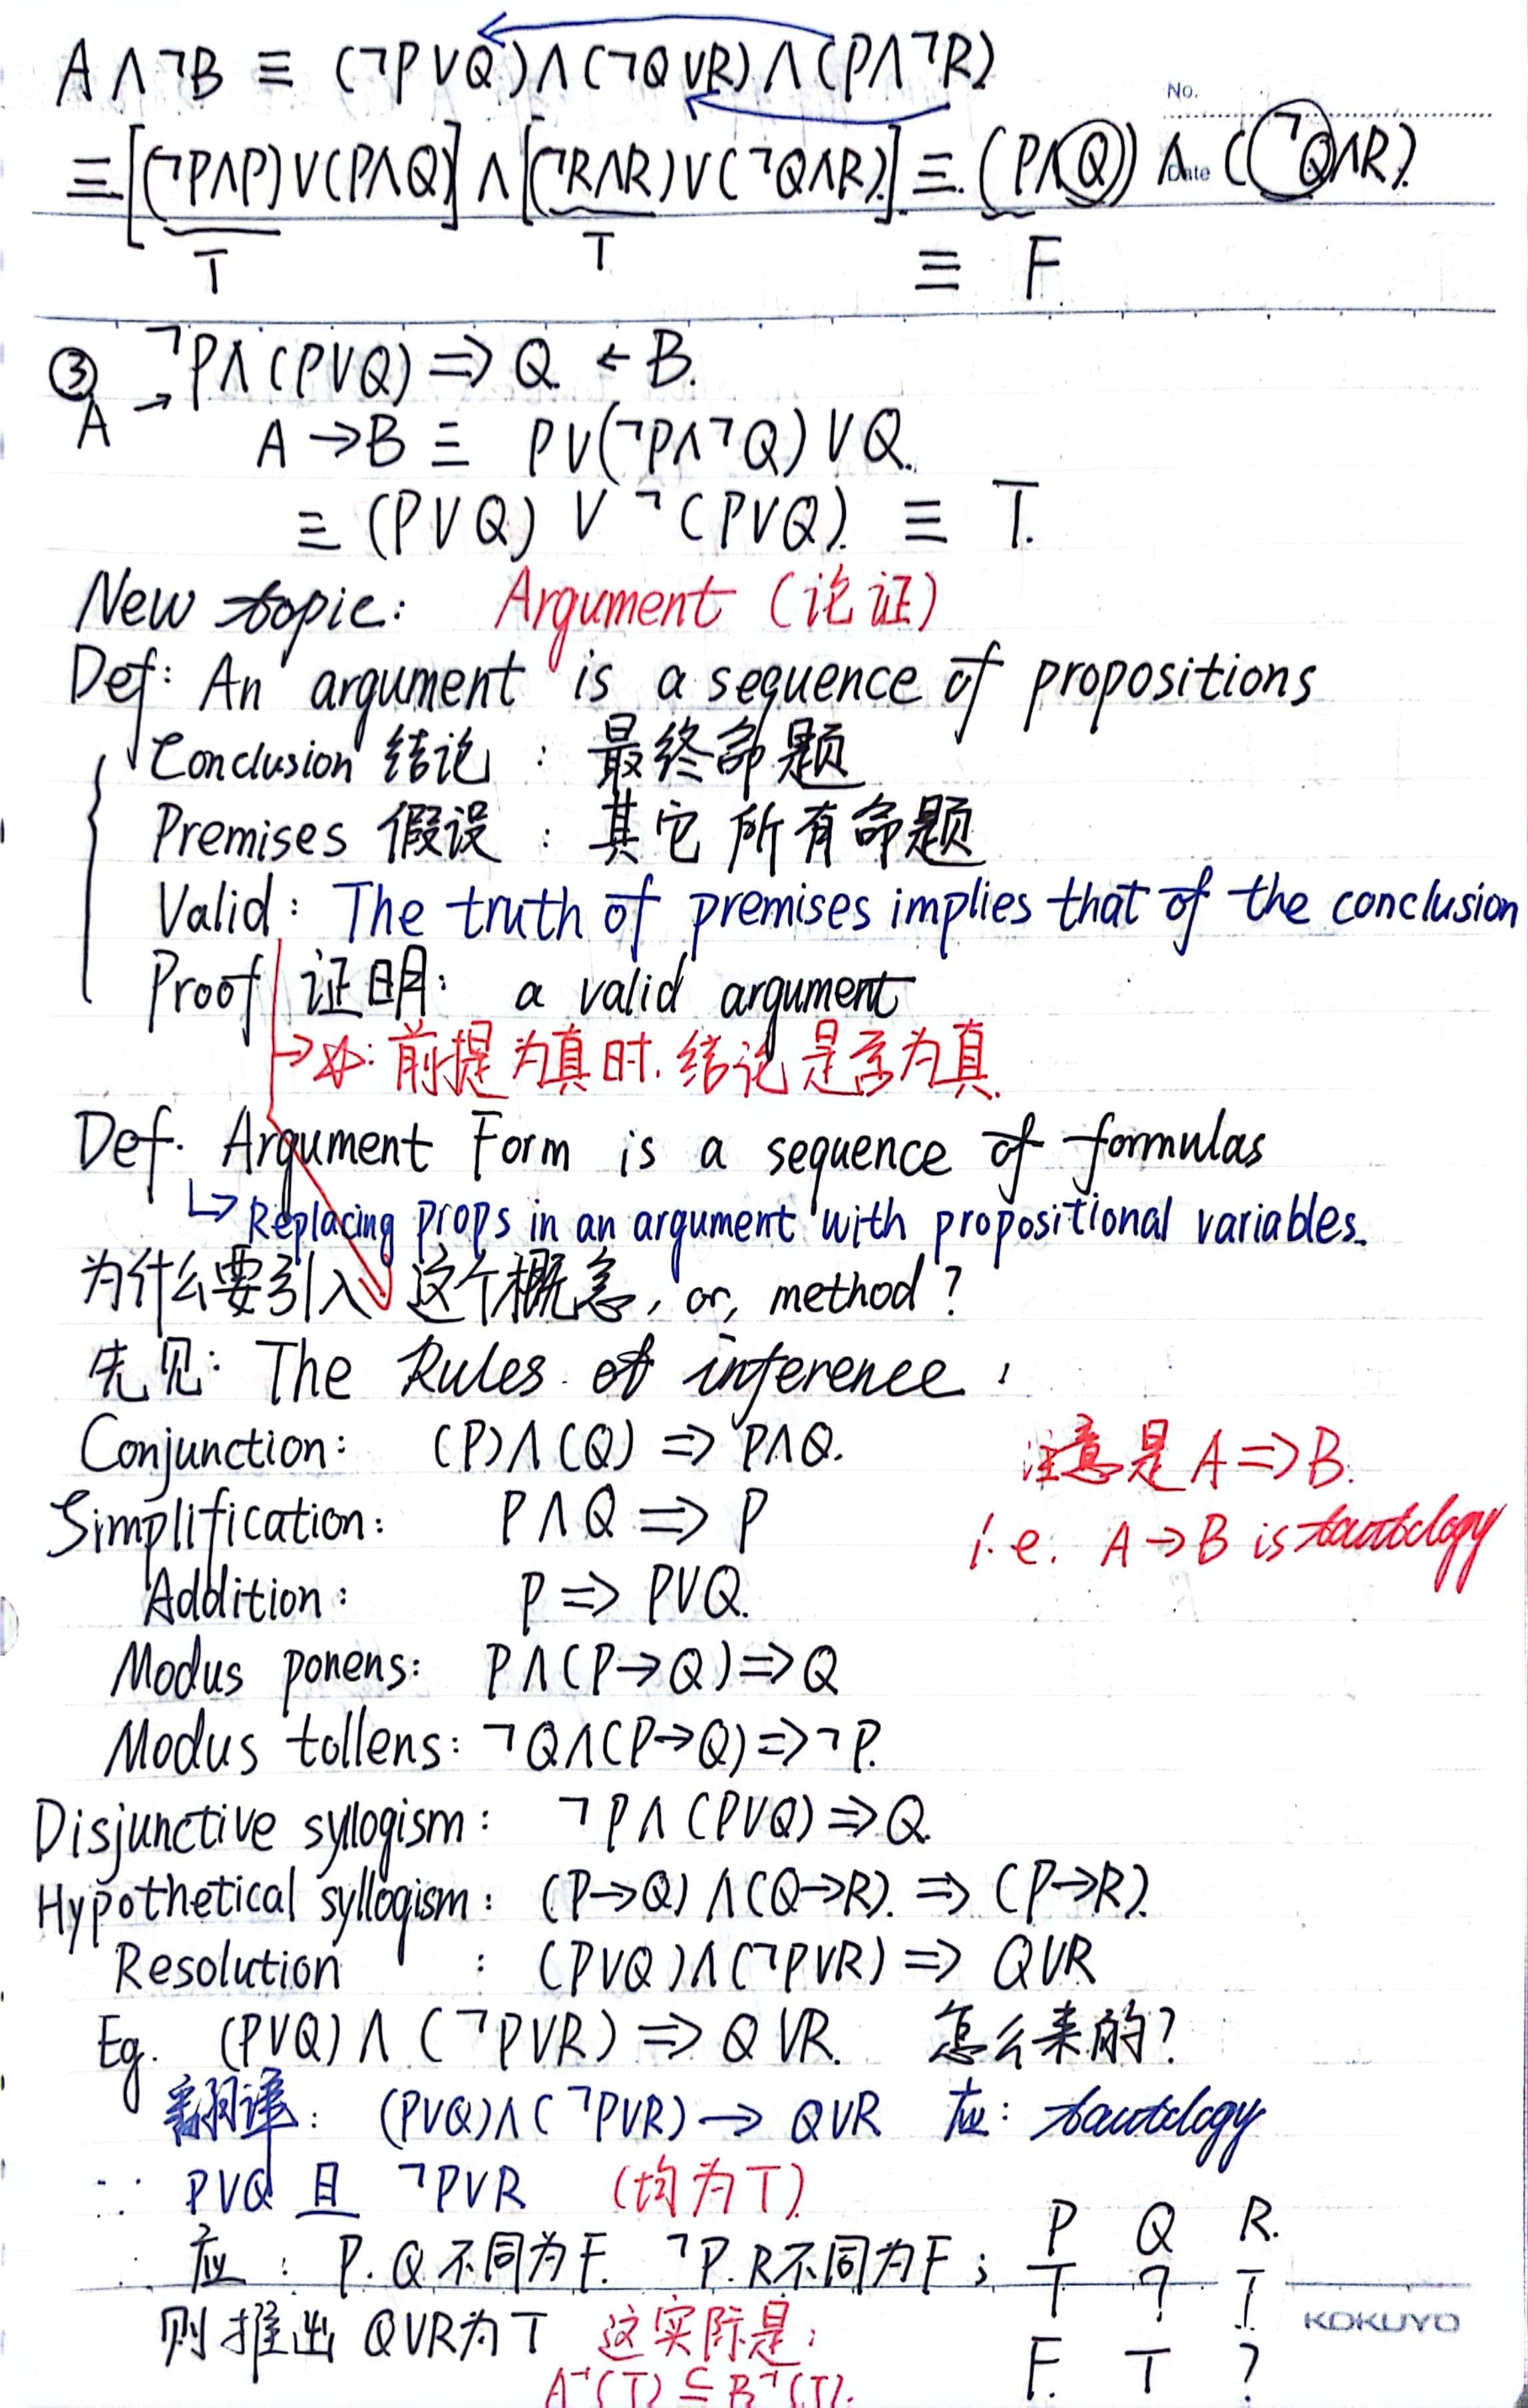 A∧¬B ≡ (¬P∨Q)∧(¬Q∨R)∧(P∧¬R)
No.
≡[(¬P∧P)∨(P∧Q)]∧[(¬R∧R)∨(¬Q∧R)] ≡ (P∧Q)∧(¬Q∧R).
Date
T T ≡ F.
③ ¬P∧(P∨Q) ⇒ Q. ← B.
A →
A→B ≡ P∨(¬P∧¬Q)∨Q.
≡ (P∨Q) ∨ ¬(P∨Q). ≡ T.
New topic: Argument (论证)
Def: An argument is a sequence of propositions
Conclusion 结论 : 最终命题
Premises 假设 : 其它所有命题
Valid: The truth of premises implies that of the conclusion
Proof 证明: a valid argument
→☆: 前提为真时. 结论是否为真.
Def. Argument Form is a sequence of formulas
↳ Replacing props in an argument with propositional variables.
为什么要引入这个概念, or, method?
先见: The Rules of inference:
Conjunction: (P)∧(Q) ⇒ P∧Q.
注意是 A⇒B.
Simplification: P∧Q ⇒ P
i.e. A→B is tautology
Addition: P ⇒ P∨Q.
Modus ponens: P∧(P→Q)⇒Q
Modus tollens: ¬Q∧(P→Q)⇒¬P.
Disjunctive syllogism: ¬P∧(P∨Q)⇒Q.
Hypothetical syllogism: (P→Q)∧(Q→R). ⇒ (P→R).
Resolution : (P∨Q)∧(¬P∨R) ⇒ Q∨R
Eg. (P∨Q)∧(¬P∨R) ⇒ Q∨R. 怎么来的?
翻译: (P∨Q)∧(¬P∨R) → Q∨R 应: tautology
∵ P∨Q 且 ¬P∨R (均为T)
P Q R.
∴ 应: P.Q不同为F. ¬P.R不同为F;
T ? T
KOKUYO
则推出 Q∨R为T 这实际是:
F. T ?
A⁻¹(T) ⊆ B⁻¹(T).